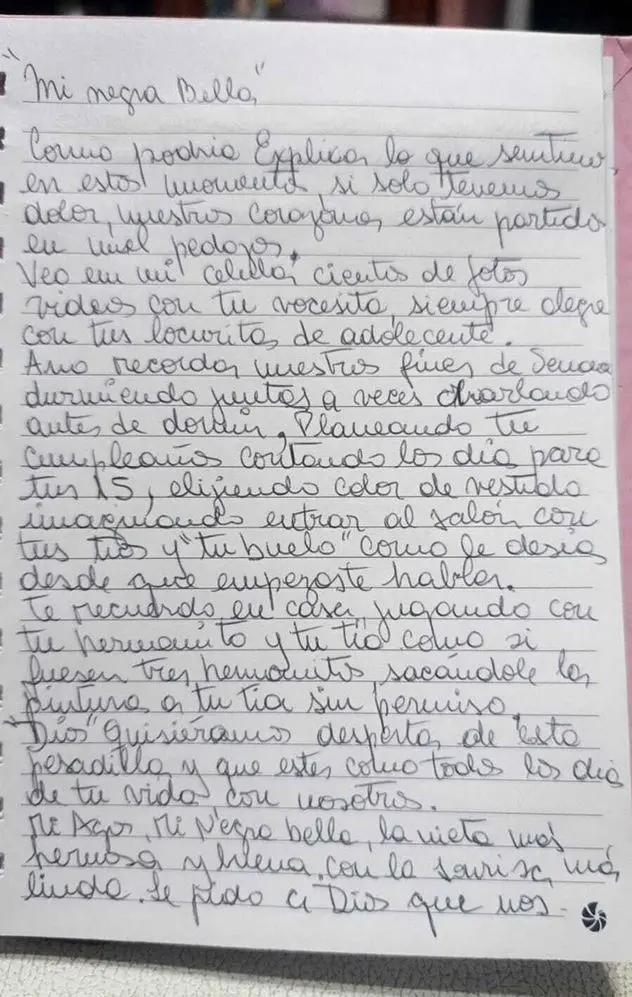 "Mi negra Bella"
Como podria Explicar lo que sentimos
en estos momentos, si solo tenemos
dolor, nuestros corazones están partidos
en miel pedazos.
Veo en mi celular cientos de fotos
videos con tu vocesita, siempre alegre
con tus locuritas de adolecente.
Amo recordar nuestros fines de Semana
durmiendo juntas a veces charlando
antes de dormir, Planeando tu
cumpleaños contando los dia para
tus 15, eligiendo color de vestido
imaginando entrar al salón con
tus tios y "tu buelo" como le desias
desde que empezaste hablar.
Te recuerdo en casa, jugando con
tu hermanito y tu tio como si
fuesen tres hermanitos, sacándole las
pinturas a tu tia sin permiso.
"Dios" quisiéramos despertar de esta
pesadilla y que estes como todos los dias
de tu vida con nosotros.
Mi Agos, Mi Negra bella, la nieta mas
hermosa y buena, con la sonrisa más
linda. Le pido a Dios que nos